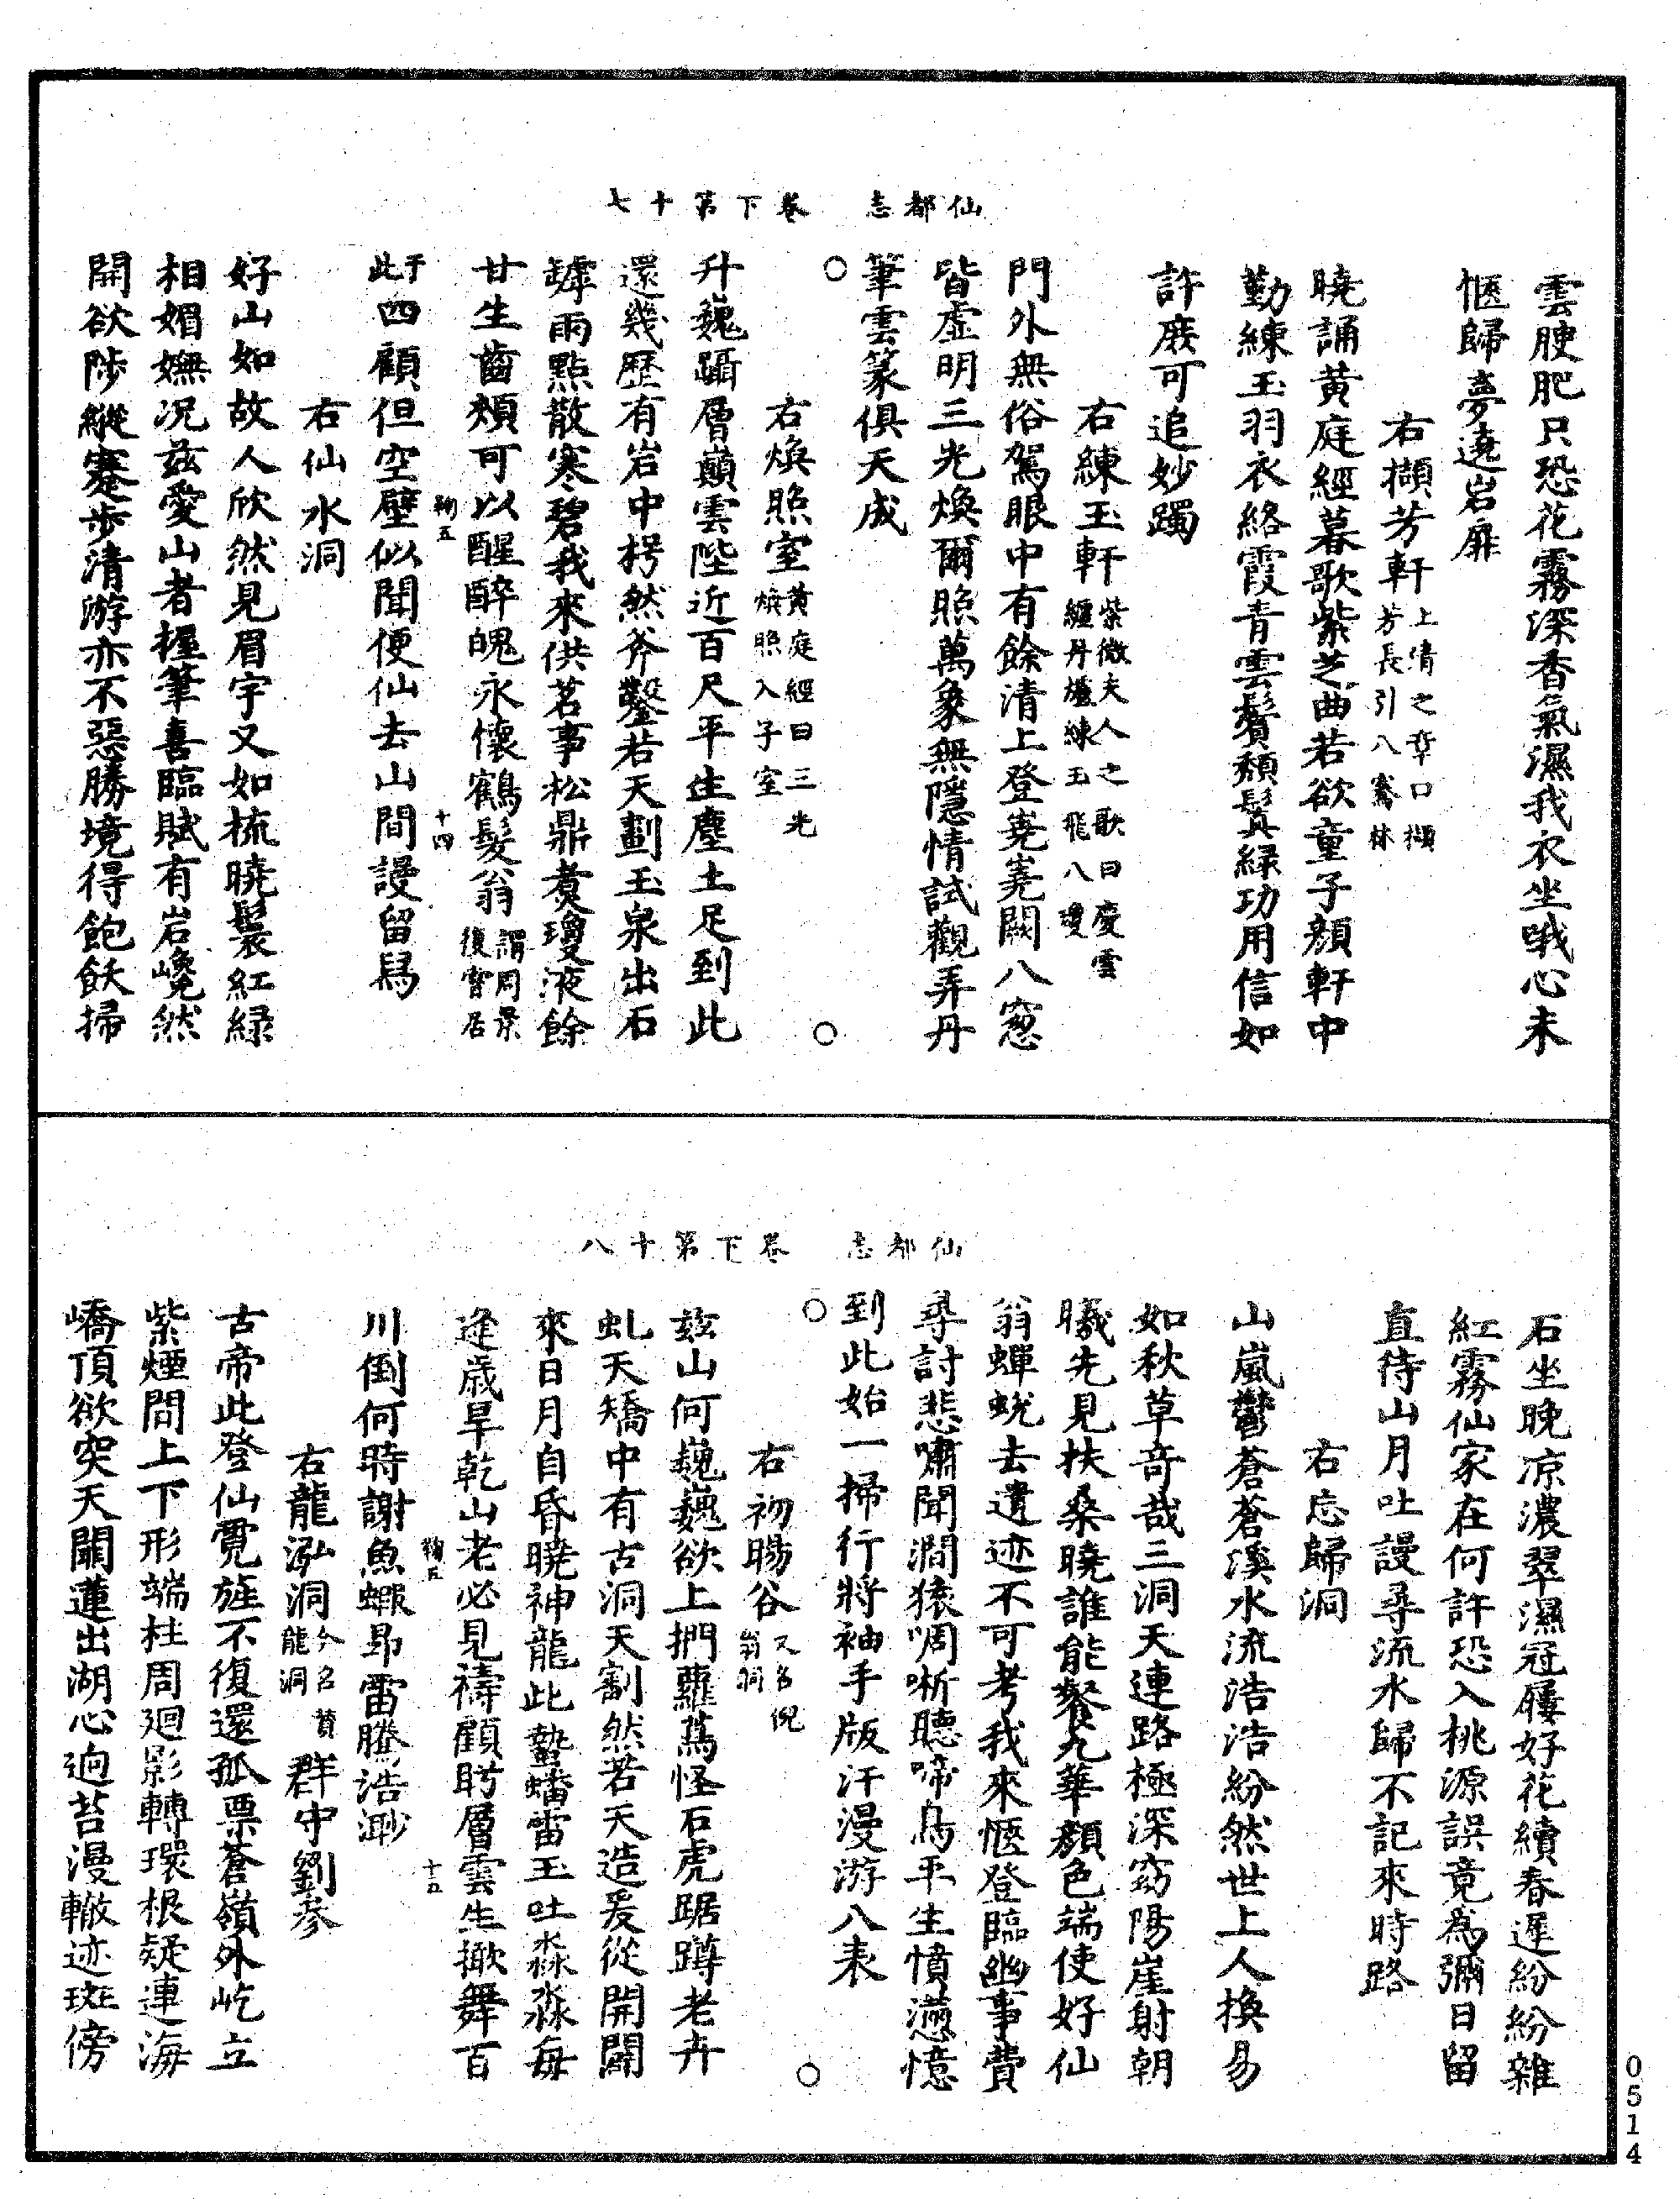 仙都志　卷下第十七
雲腴肥只恐花霧深香氣濕我衣坐哦心未
愜歸夢遶岩扉
右擷芳軒上清之章口擷芳長引八騫林
曉誦黃庭經暮歌紫芝曲若欲童子顏軒中
勤練玉羽衣絡霞青雲鬢頳鬒緑功用信如
許庶可追妙躅
右練玉軒紫微夫人之歌曰慶雲纏丹爐練玉飛八瓊
門外無俗駕眼中有餘清上登嶤嶤闕八窓
皆虛明三光煥爾照萬象無隱情試觀弄丹
筆雲篆俱天成
右煥照室黃庭經曰三光煥照入子室
升巍躡層巔雲陛近百尺平生塵土足到此
還幾歷有岩中枵然斧鑿若天劃玉泉出石
罅雨點散寒碧我來供茗事松鼎煑瓊液餘
甘生齒頰可以醒醉魄永懷鶴髮翁謂周景復嘗居
于此四顧但空壁似聞便仙去山間謾留舄
鞠五
十四
右仙水洞
好山如故人欣然見眉宇又如梳曉鬟紅緑
相媚嫵况兹愛山者握筆喜臨賦有岩巉然
開欲陟縱蹇步清游亦不惡勝境得飽飫掃
仙都志　卷下第十八
石坐晚凉濃翠濕冠屨好花續春遲紛紛雜
紅霧仙家在何許恐入桃源誤竟為彌日留
直待山月吐謾尋流水歸不記來時路
右忘歸洞
山嵐鬱蒼蒼溪水流浩浩紛然世上人換易
如秋草奇哉三洞天連路極深窈陽崖射朝
曦先見扶桑曉誰能餐九華顏色端使好仙
翁蟬蛻去遺迹不可考我來愜登臨幽事費
尋討悲嘯聞澗猿啁哳聽啼鳥平生憤懣憶
到此始一掃行將袖手版汗漫游八表
右初暘谷又名倪翁洞
兹山何巍巍欲上捫蘿蔦怪石虎踞蹲老卉
虬天矯中有古洞天劃然若天造爰從開闢
來日月自昏曉神龍此蟄蟠雷玉吐淼淼每
逢歲旱乾山老必見禱顧盻層雲生撤舞百
川倒何時謝魚蝦昂雷騰浩渺
鞠五
十五
右龍泓洞今名賛龍洞　群守劉參
古帝此登仙霓旌不復還孤票蒼嶺外屹立
紫煙間上下形端柱周迴影轉環根疑連海
嶠頂欲突天關蓮出湖心逈苔漫轍迹斑傍
0514